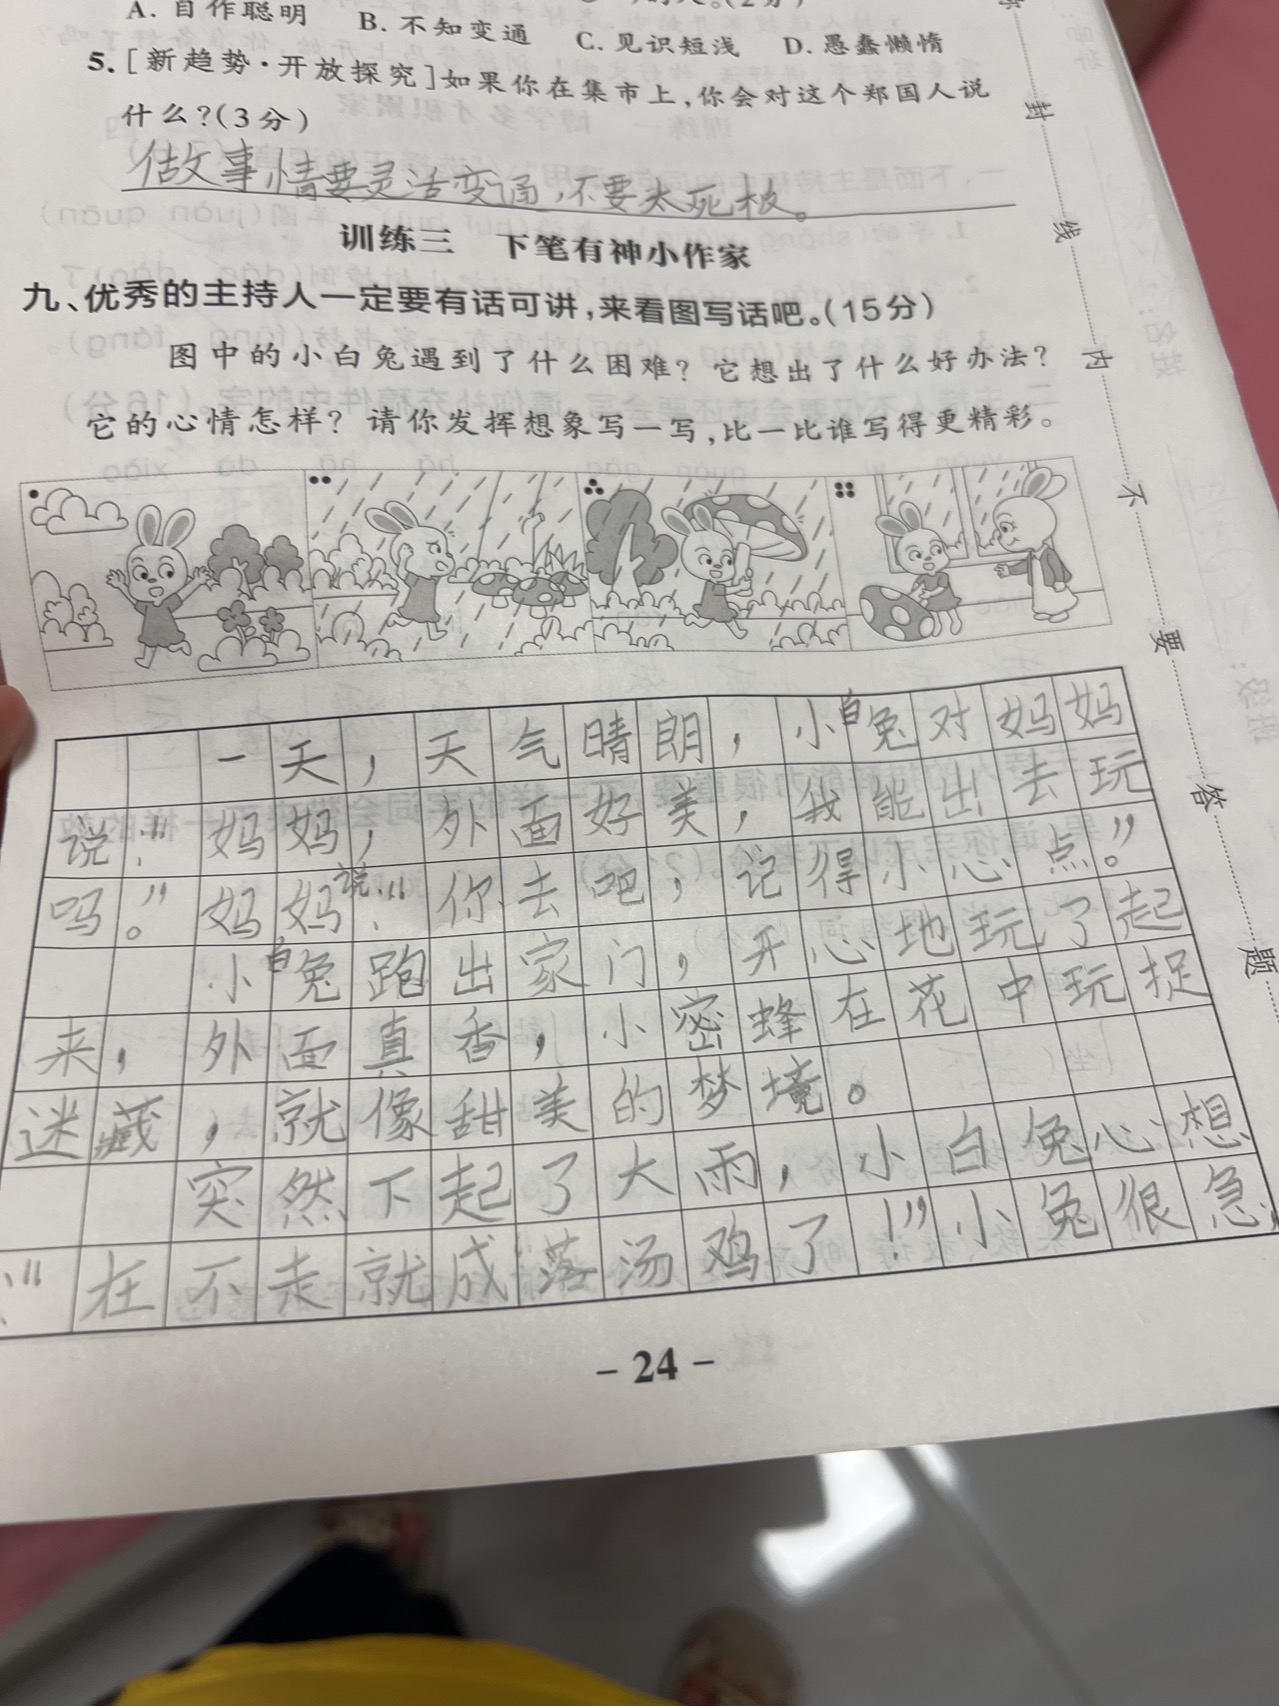 A. 自作聪明 B. 不知变通 C. 见识短浅 D. 愚蠢懒惰
5. [新趋势·开放探究]如果你在集市上,你会对这个郑国人说
什么?(3分)
做故事情要灵活变通,不要太死板。
训练三 下笔有神小作家
九、优秀的主持人一定要有话可讲,来看图写话吧。(15分)
图中的小白兔遇到了什么困难?它想出了什么好办法?
它的心情怎样?请你发挥想象写一写,比一比谁写得更精彩。
一天,天气晴朗,小白兔对妈妈
说:“妈妈,外面好美,我能出去玩
吗。”妈妈说:“你去吧,记得小心点。”
小白兔跑出家门,开心地玩了起
来,外面真香,小密蜂在花中玩捉
迷藏,就像甜美的梦境。
突然下起了大雨,小白兔心想
:“在不走就成落汤鸡了!”小兔很急,
－24－
封
线
内
不
要
答
题